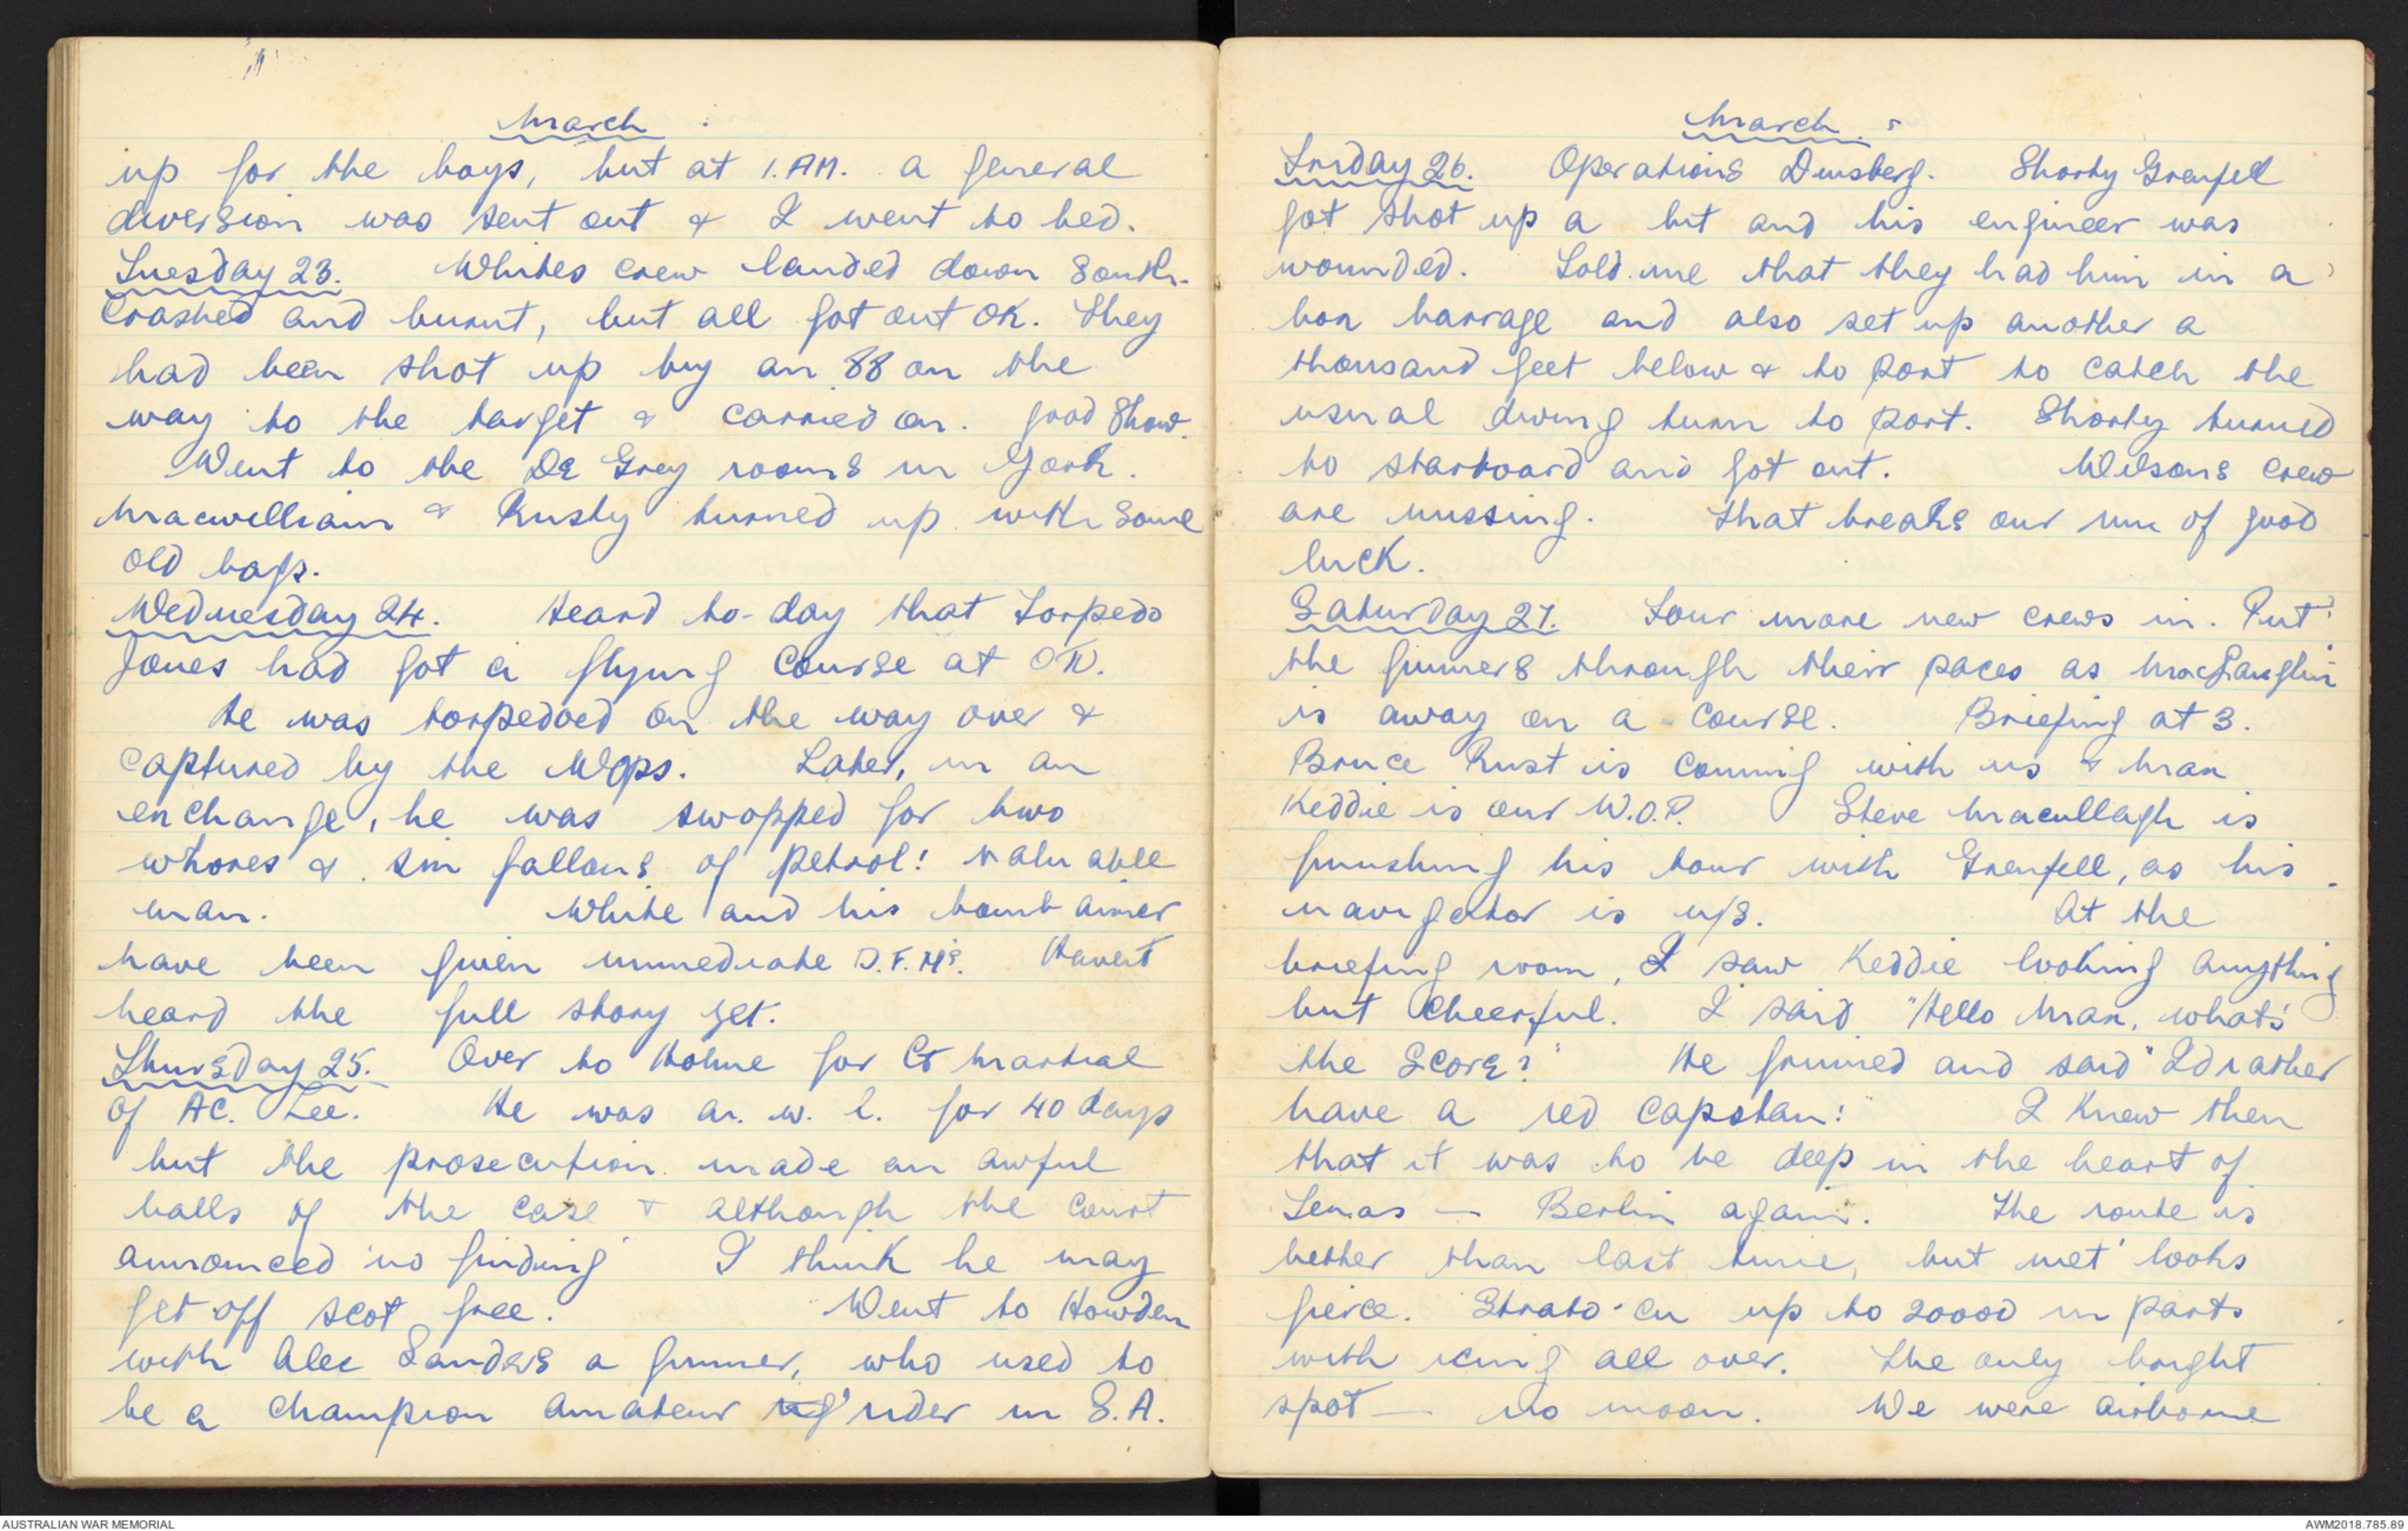 March
up for the boys, but at 1.AM. a general
diversion was sent out & I went to bed.
Tuesday 23. Whites crew landed down South.
Crashed and burnt, but all got out OK. They
had been shot up by an 88 on the
way to the target & carried on. good Show.
Went to the De Grey rooms in York.
Macwilliam & Rusty turned up with some
old bags.
Wednesday 24. Heard to-day that Torpedo
Jones had got a flying course at OTU.
He was torpedoed on the way over &
captured by the Wops. Later, in an
exchange, he was swopped for two
whores & six gallons of petrol! Valuable
man. White and his bomb aimer
have been given immediate D.F.M's. Havent
heard the full story yet.
Thursday 25. Over to Holme for Ct Martial
of AC. Lee. He was a. w. l. for 40 days
but the prosecution made an awful
balls of the case & although the court
announced 'no finding' I think he may
get off scot free. Went to Howden
with Alec Sanders a gunner, who used to
be a champion amateur rider in S.A.
March.
Friday 26. Operations Duisberg. Shorty Grenfell
got shot up a bit and his engineer was
wounded. Told me that they had him in a
box barrage and also set up another a
thousand feet below & to port to catch the
usual diving turn to port. Shorty turned
to starboard and got out. Wilsons crew
are missing. That breaks our run of good
luck.
Saturday 27. Four more new crews in. Put
the gunners through their paces as MacLauglin
is away on a course. Briefing at 3.
Bruce Rust is coming with us & Max
Keddie is our W.O.P. Steve Macullagh is
finishing his tour with Grenfell, as his
navigator is u/s. At the
briefing room, I saw Keddie looking anything
but cheerful. I said "Hello Max, what's
the score?" He grinned and said "Id rather
have a red capstan!" I knew then
that it was to be deep in the heart of
Texas — Berlin again. The route is
better than last time, but met' looks
fierce. Strato-cu up to 20000 in parts
with icing all over. The only bright
spot — no moon. We were airborne
AUSTRALIAN WAR MEMORIAL
AWM2018.785.89